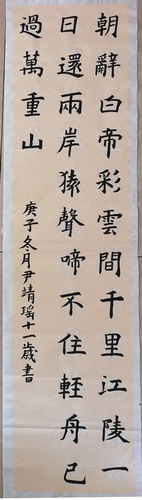 朝辭白帝彩雲間千里江陵一
日還兩岸猿聲啼不住輕舟已
過萬重山
庚子冬月尹靖瑶十一歲書